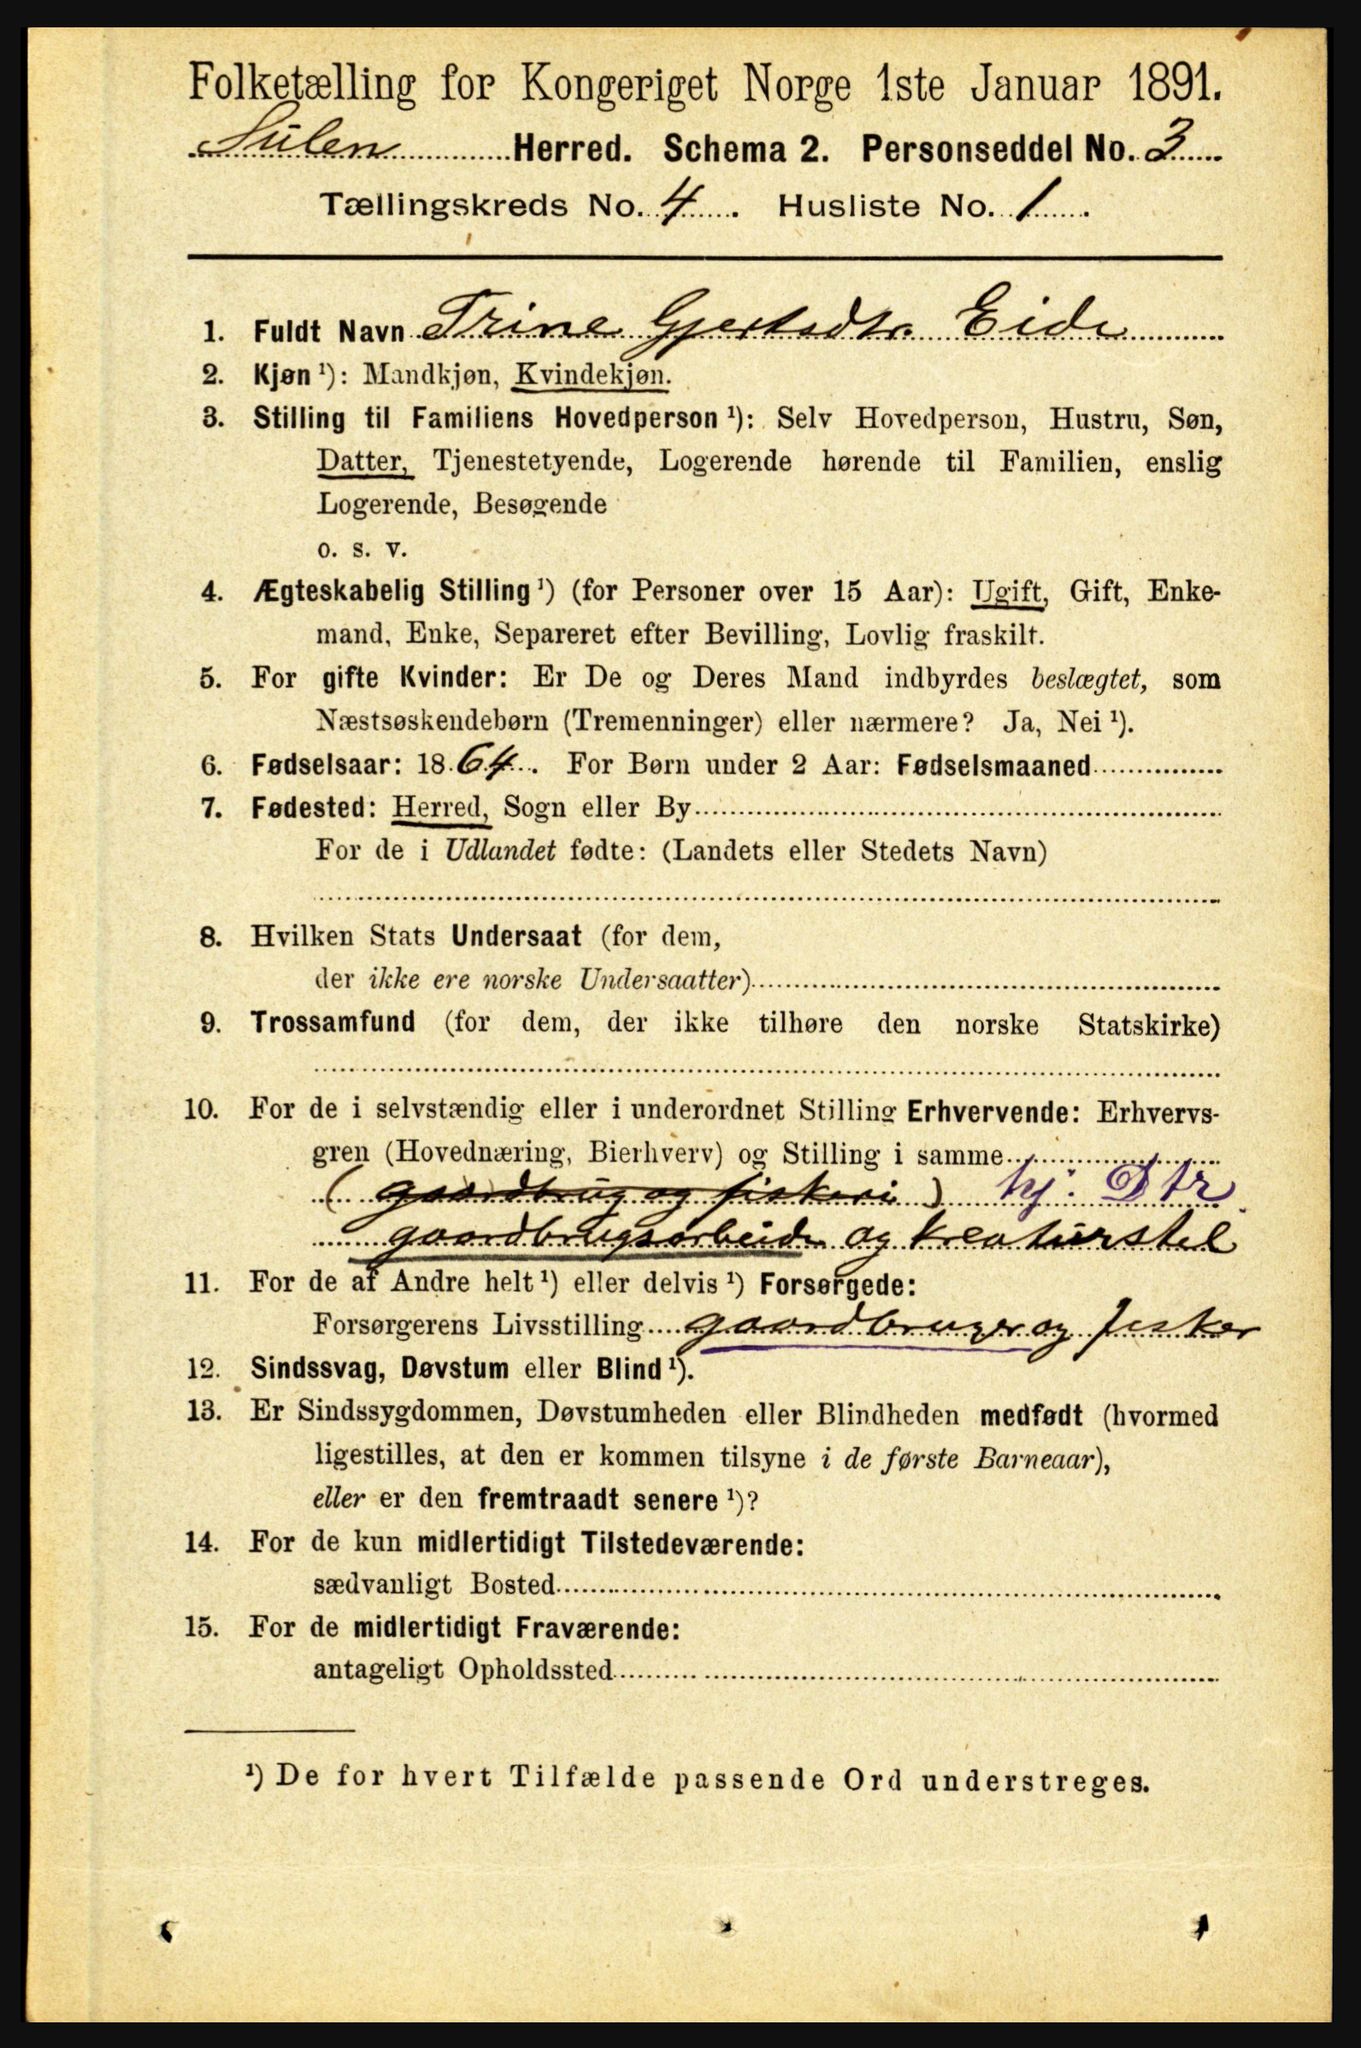 Folketælling for Kongeriget Norge 1ste Januar 1891.
Sulen Herred. Schema 2. Personseddel No. 3
Tællingskreds No. 4. Husliste No. 1.
1. Fuldt Navn Trine Gjertsdtr. Eide
2. Kjøn ¹): Mandkjøn, Kvindekjøn.
3. Stilling til Familiens Hovedperson ¹): Selv Hovedperson, Hustru, Søn,
Datter, Tjenestetyende, Logerende hørende til Familien, enslig
Logerende, Besøgende
o. s. v.
4. Ægteskabelig Stilling ¹) (for Personer over 15 Aar): Ugift, Gift, Enke-
mand, Enke, Separeret efter Bevilling, Lovlig fraskilt.
5. For gifte Kvinder: Er De og Deres Mand indbyrdes beslægtet, som
Næstsøskendebørn (Tremenninger) eller nærmere? Ja, Nei ¹).
6. Fødselsaar: 1864. For Børn under 2 Aar: Fødselsmaaned
7. Fødested: Herred, Sogn eller By
For de i Udlandet fødte: (Landets eller Stedets Navn)
8. Hvilken Stats Undersaat (for dem,
der ikke ere norske Undersaatter)
9. Trossamfund (for dem, der ikke tilhøre den norske Statskirke)
10. For de i selvstændig eller i underordnet Stilling Erhvervende: Erhvervs-
gren (Hovednæring, Bierhverv) og Stilling i samme
(gaardbrug og fiskeri) hj. Dtr.
gaardbrugsarbeide og kreaturstel
11. For de af Andre helt ¹) eller delvis ¹) Forsørgede:
Forsørgerens Livsstilling gaardbruger og fisker
12. Sindssvag, Døvstum eller Blind ¹).
13. Er Sindssygdommen, Døvstumheden eller Blindheden medfødt (hvormed
ligestilles, at den er kommen tilsyne i de første Barneaar),
eller er den fremtraadt senere ¹)?
14. For de kun midlertidigt Tilstedeværende:
sædvanligt Bosted
15. For de midlertidigt Fraværende:
antageligt Opholdssted
¹) De for hvert Tilfælde passende Ord understreges.